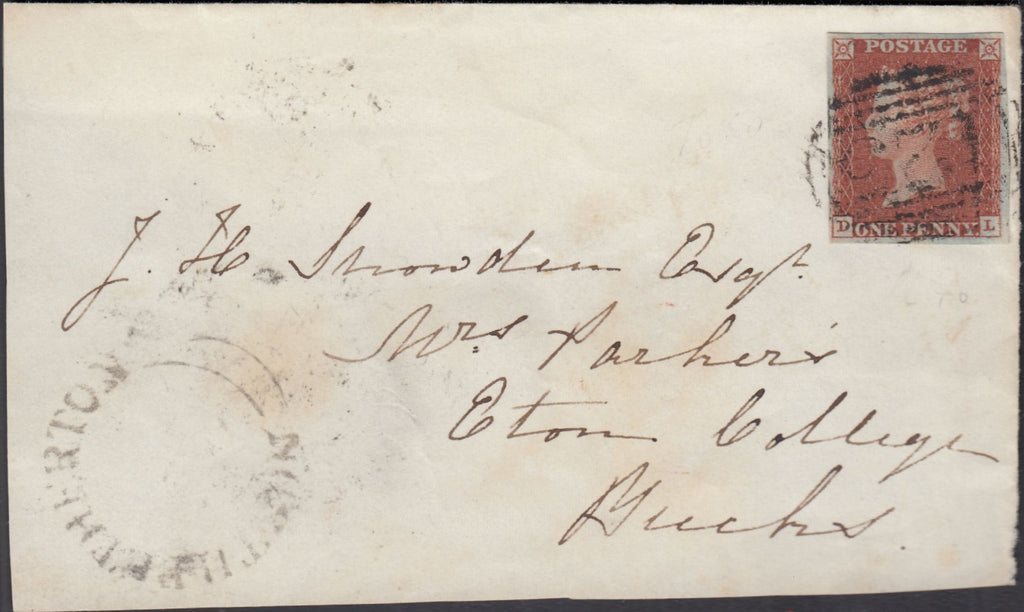 POSTAGE
D ONE PENNY L
J. H Snowden Esqr.
Mrs Parker's
Eton College
Bucks.